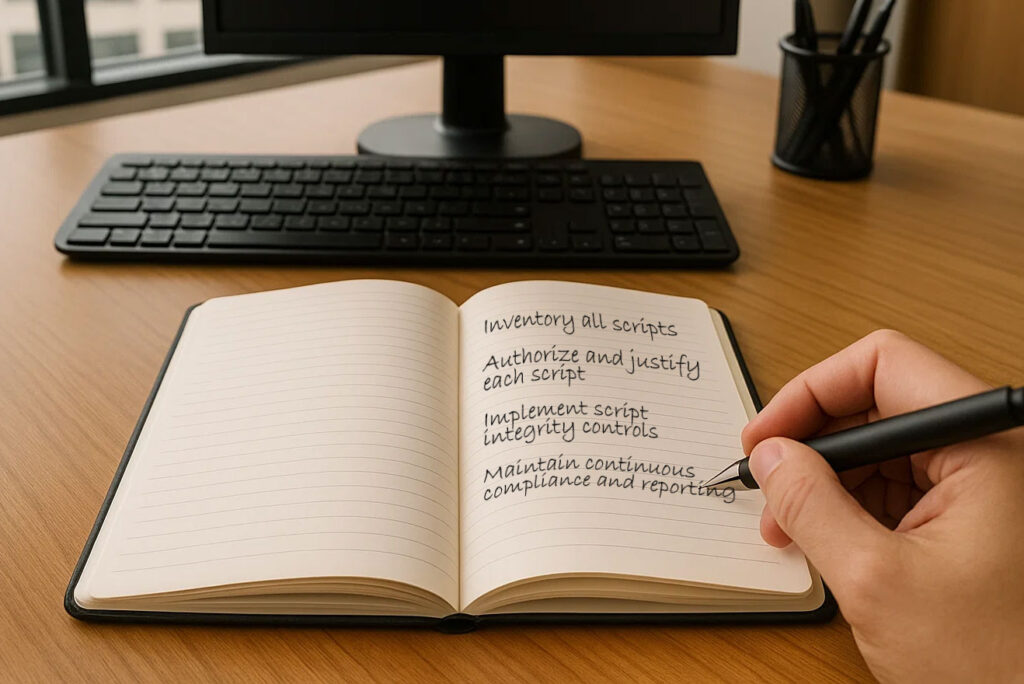 Inventory all scripts
Authorize and justify
each script
Implement script
integrity controls
Maintain continuous
compliance and reporting